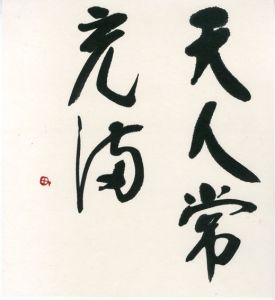 天人常
充满